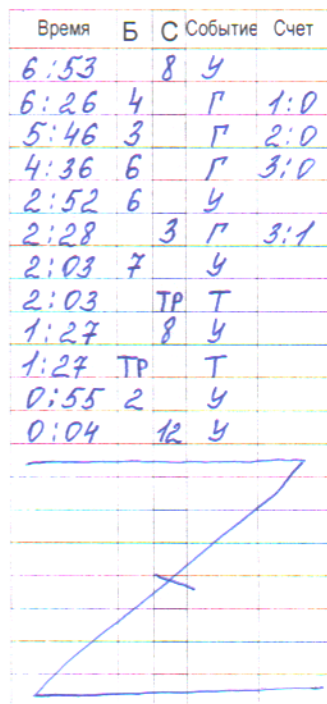 Время Б С Событие Счет
6:53 8 У
6:26 4 Г 1:0
5:46 3 Г 2:0
4:36 6 Г 3:0
2:52 6 У
2:28 3 Г 3:1
2:03 7 У
2:03 ТР Т
1:27 8 У
1:27 ТР Т
0:55 2 У
0:04 12 У